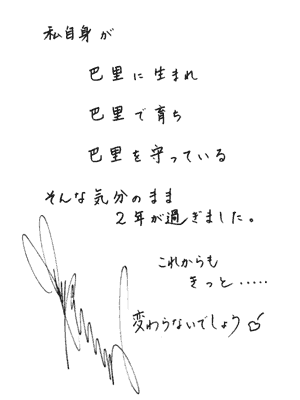 私自身が
巴里に生まれ
巴里で育ち
巴里を守っている
そんな気分のまま
2年が過ぎました。
これからも
きっと・・・・・
変わらないでしょう